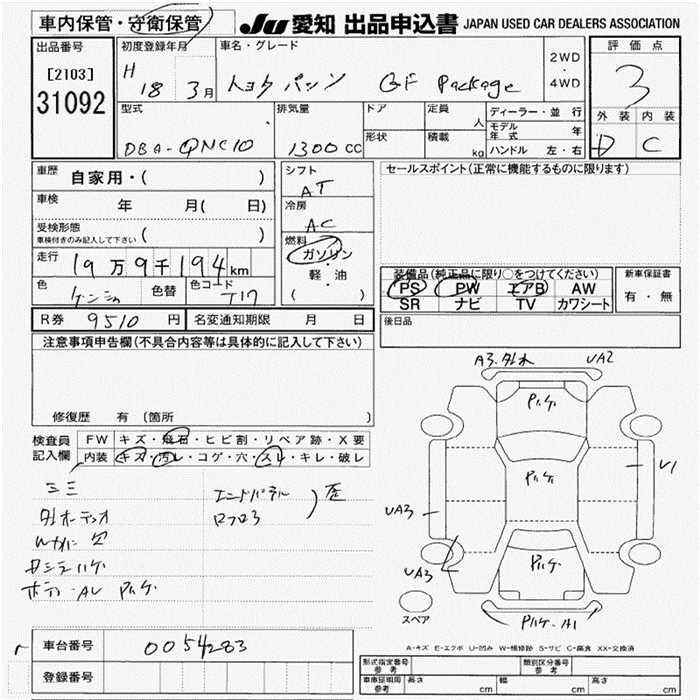 車内保管・守衛保管
JU 愛知 出品申込書 JAPAN USED CAR DEALERS ASSOCIATION
出品番号
[2103]
31092
初度登録年月
H 18 3月
車名・グレード
トヨタ パッソ GF Package
2WD
・
4WD
評価点
3
外装 内装
D C
型式
DBA-QNC10
排気量
1300 CC
ドア
定員
人
形状
積載
kg
ディーラー・並行
モデル年式 年
ハンドル 左・右
車歴
自家用・( )
車検 年 月( 日)
受検形態
車検付きのみ記入して下さい ( )
走行 19万9千194km
色 色替 色コード T17
R券 9510 円 名変通知期限 月 日
シフト
AT
冷房
AC
燃料
ガソリン
・
軽・油
( )
セールスポイント(正常に機能するものに限ります)
装備品(純正品に限り○をつけてください)
PS PW エアB AW
SR ナビ TV カワシート
新車保証書
有・無
後日品
注意事項申告欄(不具合内容等は具体的に記入して下さい)
修復歴 有 (箇所 )
検査員記入欄
FW キズ・飛石・ヒビ割・リペア跡・X要
内装 キズ・汚レ・コゲ・穴・スレ・キレ・破レ
エンドパネル
ロフロ3
歪
ボディ・AU ハゲ
A3. UA2
U1
UA3
UA3
A1
スペア
A-キズ E-エクボ U-凹み W-補修跡 S-サビ C-腐食 XX-交換済
車台番号 0054283
登録番号
形式指定番号 参考
類別区分番号 参考
車庫証明用 参考 長さ cm 幅 cm 高さ cm